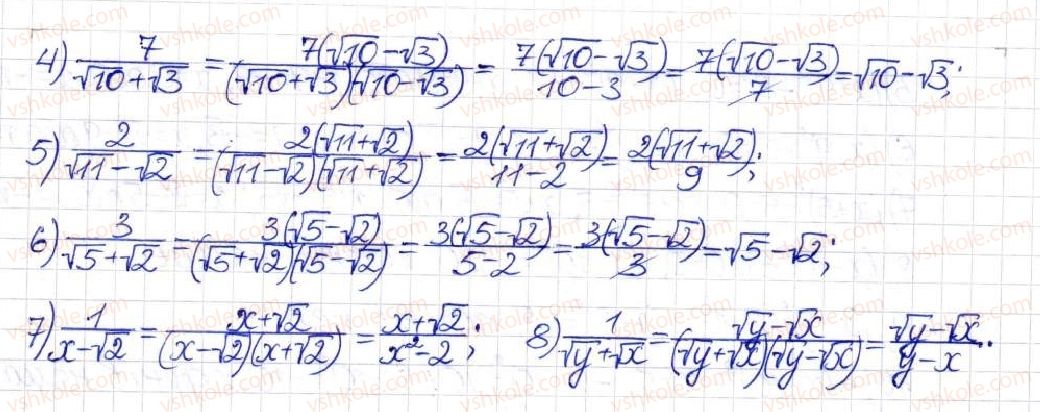 4) 7/(√10+√3) = 7(√10-√3)/((√10+√3)(√10-√3)) = 7(√10-√3)/(10-3) = 7(√10-√3)/7 = √10-√3;
5) 2/(√11-√2) = 2(√11+√2)/((√11-√2)(√11+√2)) = 2(√11+√2)/(11-2) = 2(√11+√2)/9;
6) 3/(√5+√2) = 3(√5-√2)/((√5+√2)(√5-√2)) = 3(√5-√2)/(5-2) = 3(√5-√2)/3 = √5-√2;
7) 1/(x-√2) = (x+√2)/((x-√2)(x+√2)) = (x+√2)/(x²-2); 8) 1/(√y+√x) = (√y-√x)/((√y+√x)(√y-√x)) = (√y-√x)/(y-x).
vshkole.com